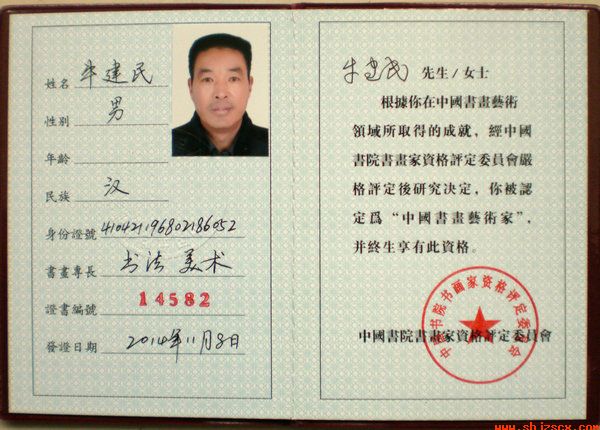 姓名 牛建民
性别 男
年龄
民族 汉
身份證號 410421196802186052
書畫專長 书法 美术
證書編號 14582
發證日期 2014年11月8日
牛建民 先生/女士
根據你在中國書畫藝術
領域所取得的成就，經中國
書院書畫家資格評定委員會嚴
格評定後研究決定，你被認
定爲“中國書畫藝術家”，
并終生享有此資格。
中国书院书画家资格评定委员会
中國書院書畫家資格評定委員會
www.shjzscx.com